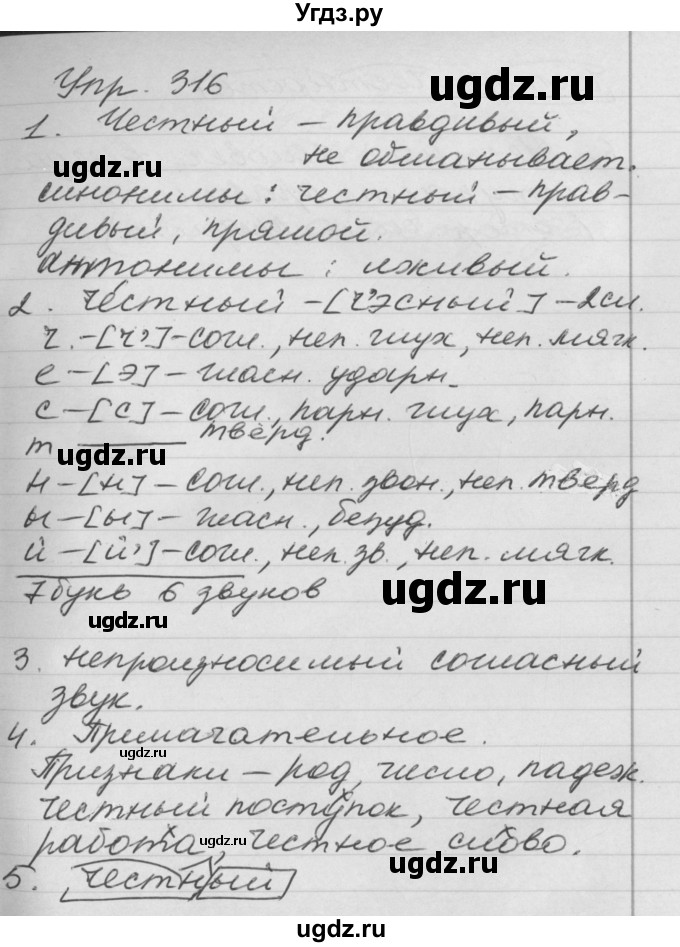 Угдз.ру
Упр. 316
ugdz.ru
1. Честный – правдивый,
не обманывает.
ugdz.ru
синонимы: честный – прав-
дивый, прямой.
антонимы: лживый.
2. Честный – [ч'эсный'] – 2 сл.
ч. – [ч'] – согл., неп. глух, неп. мягк.
е – [э] – гласн. ударн.
с – [с] – согл., парн. глух, парн.
т —— твёрд.
ugdz.ru
н – [н] – согл., неп. звон., неп. тверд
ы – [ы] – гласн., безуд.
й – [й'] – согл., неп. зв., неп. мягк.
7 букв 6 звуков
ugdz.ru
ugdz.ru
3. Непроизносимый согласный
звук.
4. Прилагательное.
ugdz.ru
ugdz.ru
Признаки – род, число, падеж.
Честный поступок, честная
работа, честное слово.
ugdz.ru
5. честный
ugdz.ru
ugdz.ru